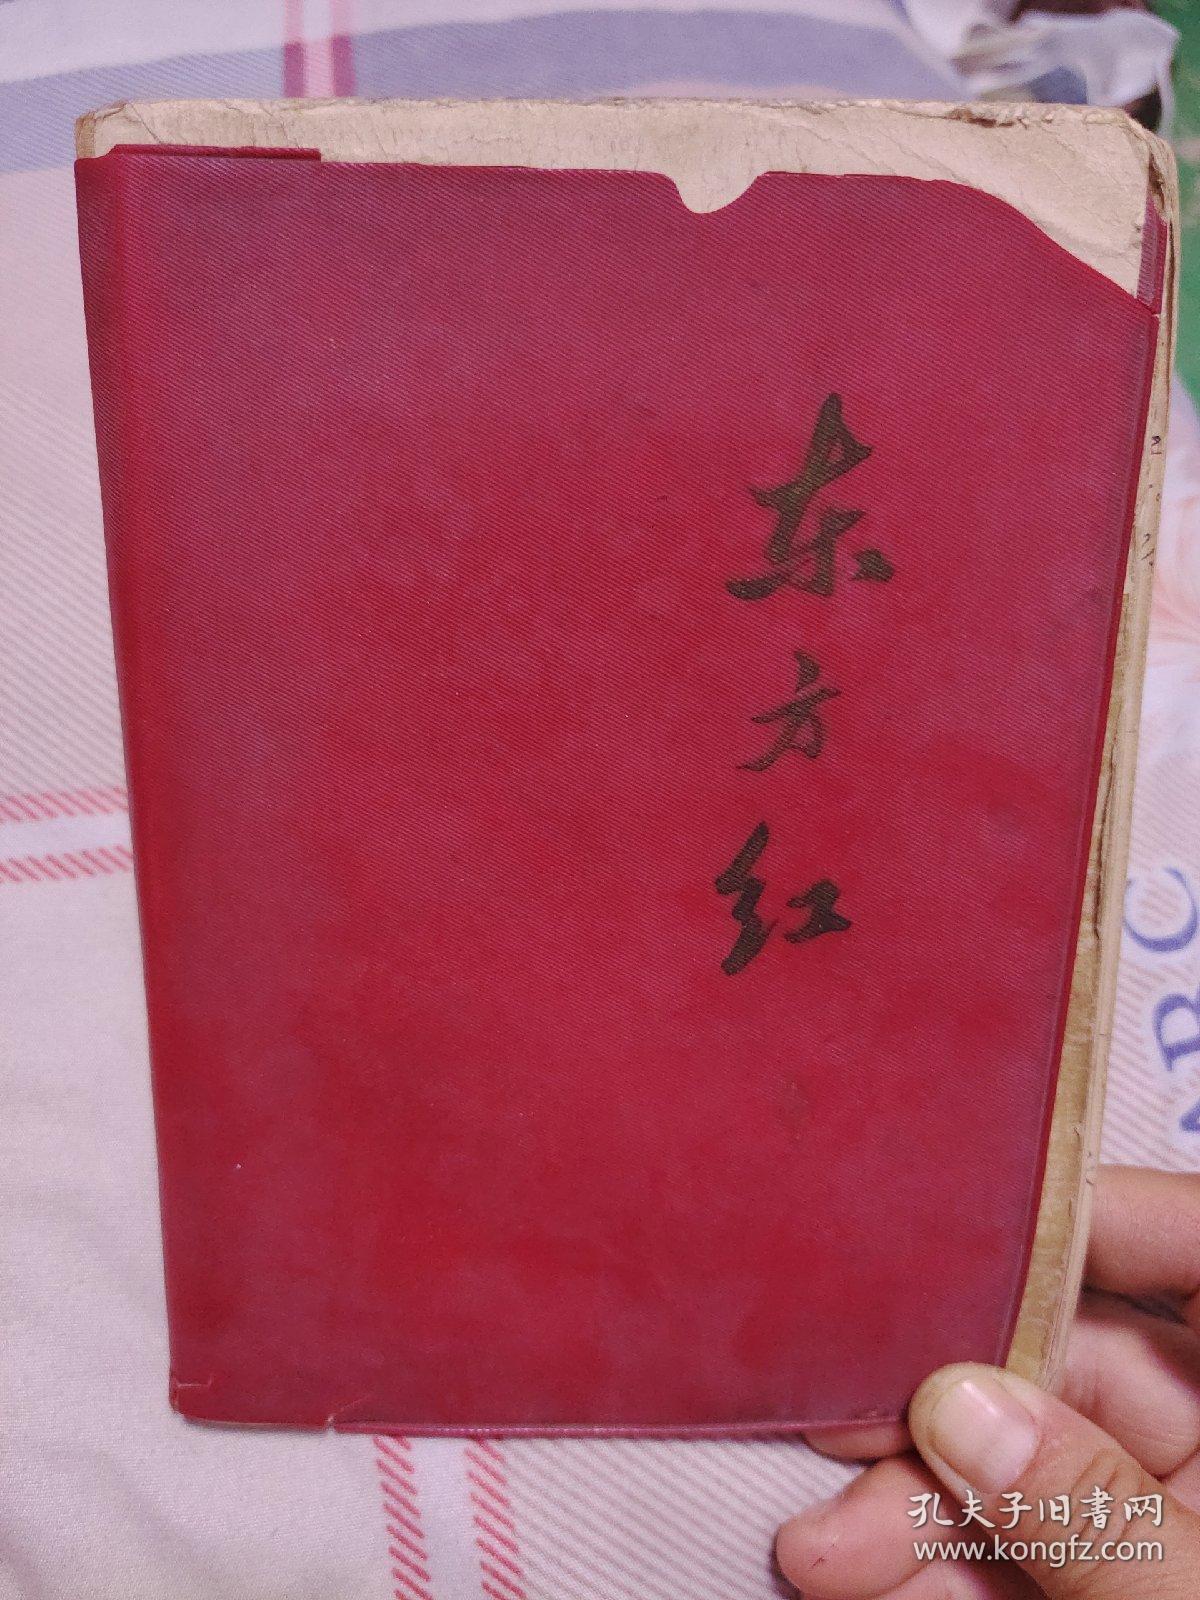 东方红
ABC
孔夫子旧書网
www.kongfz.com